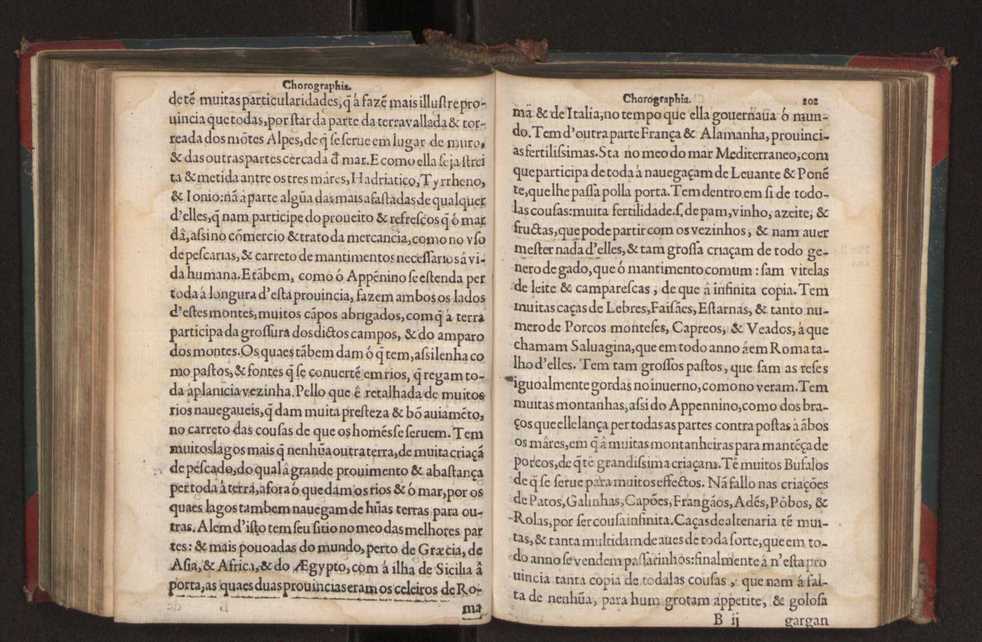 Chorographia.
de tẽ muitas particularidades, q̃ â fazẽ mais illustre pro-
uincia que todas, por star da parte da terra vallada & tor-
reada dos mõtes Alpes, de q̃ se serue em lugar de muro,
& das outras partes cercada d̃ mar. E como ella seja strei
ta & metida antre os tres mâres, Hadriatico, Tyrrheno,
& Ionio: nã â parte algũa das mais afastadas de qualquer
d'elles, q̃ nam participe do proueito & refrescos q̃ ô mar
dâ, assi no cõmercio & trato da mercancia, como no vso
de pescarias, & carreto de mantimentos necessarios â vi-
da humana. E tãbem, como ô Appẽnino se estenda per
toda â longura d'esta prouincia, fazem ambos os lados
d'estes montes, muitos cãpos abrigados, com q̃ â terra
participa da grossura dos dictos campos, & do amparo
dos montes. Os quaes tãbem dam ô q̃ tem, assi lenha co
mo pastos, & fontes q̃ se conuertẽ em rios, q̃ regam to-
da â planicia vezinha. Pello que ê retalhada de muitos
rios nauegaueis, q̃ dam muita presteza & bõ auiamẽto,
no carreto das cousas de que os homẽs se seruem. Tem
muitos lagos mais q̃ nenhũa outra terra, de muita criaçã
de pescado, do qual â grande prouimento & abastança
per toda â terra, afora ô que dam os rios & ô mar, por os
quaes lagos tambem nauegam de hũas terras para ou-
tras. Alem d'isto tem seu sitio no meo das melhores par
tes: & mais pouoadas do mundo, perto de Græcia, de
Asia, & Africa, & do Ægypto, com â ilha de Sicilia â
porta, as quaes duas prouincias eram os celeiros de Ro-
ma
Chorographia. 202
mã & de Italia, no tempo que ella gouernaua ô mun-
do. Tem d'outra parte França & Alamanha, prouinci-
as fertilissimas. Sta no meo do mar Mediterraneo, com
que participa de toda â nauegaçam de Leuante & Ponẽ
te, que lhe passa polla porta. Tem dentro em si de todo-
las cousas: muita fertilidade. s. de pam, vinho, azeite, &
fructas, que pode partir com os vezinhos, & nam auer
mester nada d'elles, & tam grossa criaçam de todo ge-
nero de gado, que ô mantimento comum: sam vitelas
de leite & camparescas, de que â infinita copia. Tem
muitas caças de Lebres, Faisães, Estarnas, & tanto nu-
mero de Porcos monteses, Capreos, & Veados, â que
chamam Saluagina, que em todo anno â em Roma ta-
lho d'elles. Tem tam grossos pastos, que sam as reses
iguoalmente gordas no inuerno, como no veram. Tem
muitas montanhas, assi do Appennino, como dos bra-
ços que elle lança per todas as partes contra postas â ãbos
os mâres, em q̃ â muitas montanheiras para mantẽça de
porcos, de q̃ tẽ grandissima criaçam. Tẽ muitos Bufalos
de q̃ se serue para muitos effectos. Nã fallo nas criações
de Patos, Galinhas, Capões, Frangãos, Adẽs, Põbos, &
Rolas, por ser cousa infinita. Caças de altenaria tẽ mui-
tas, & tanta multidam de aues de toda sorte, que em to-
do anno se vendem passarinhos: finalmente â n'esta pro
uincia tanta copia de todalas cousas, que nam â fal-
ta de nenhũa, para hum grotam appetite, & golosa
B ij gargan